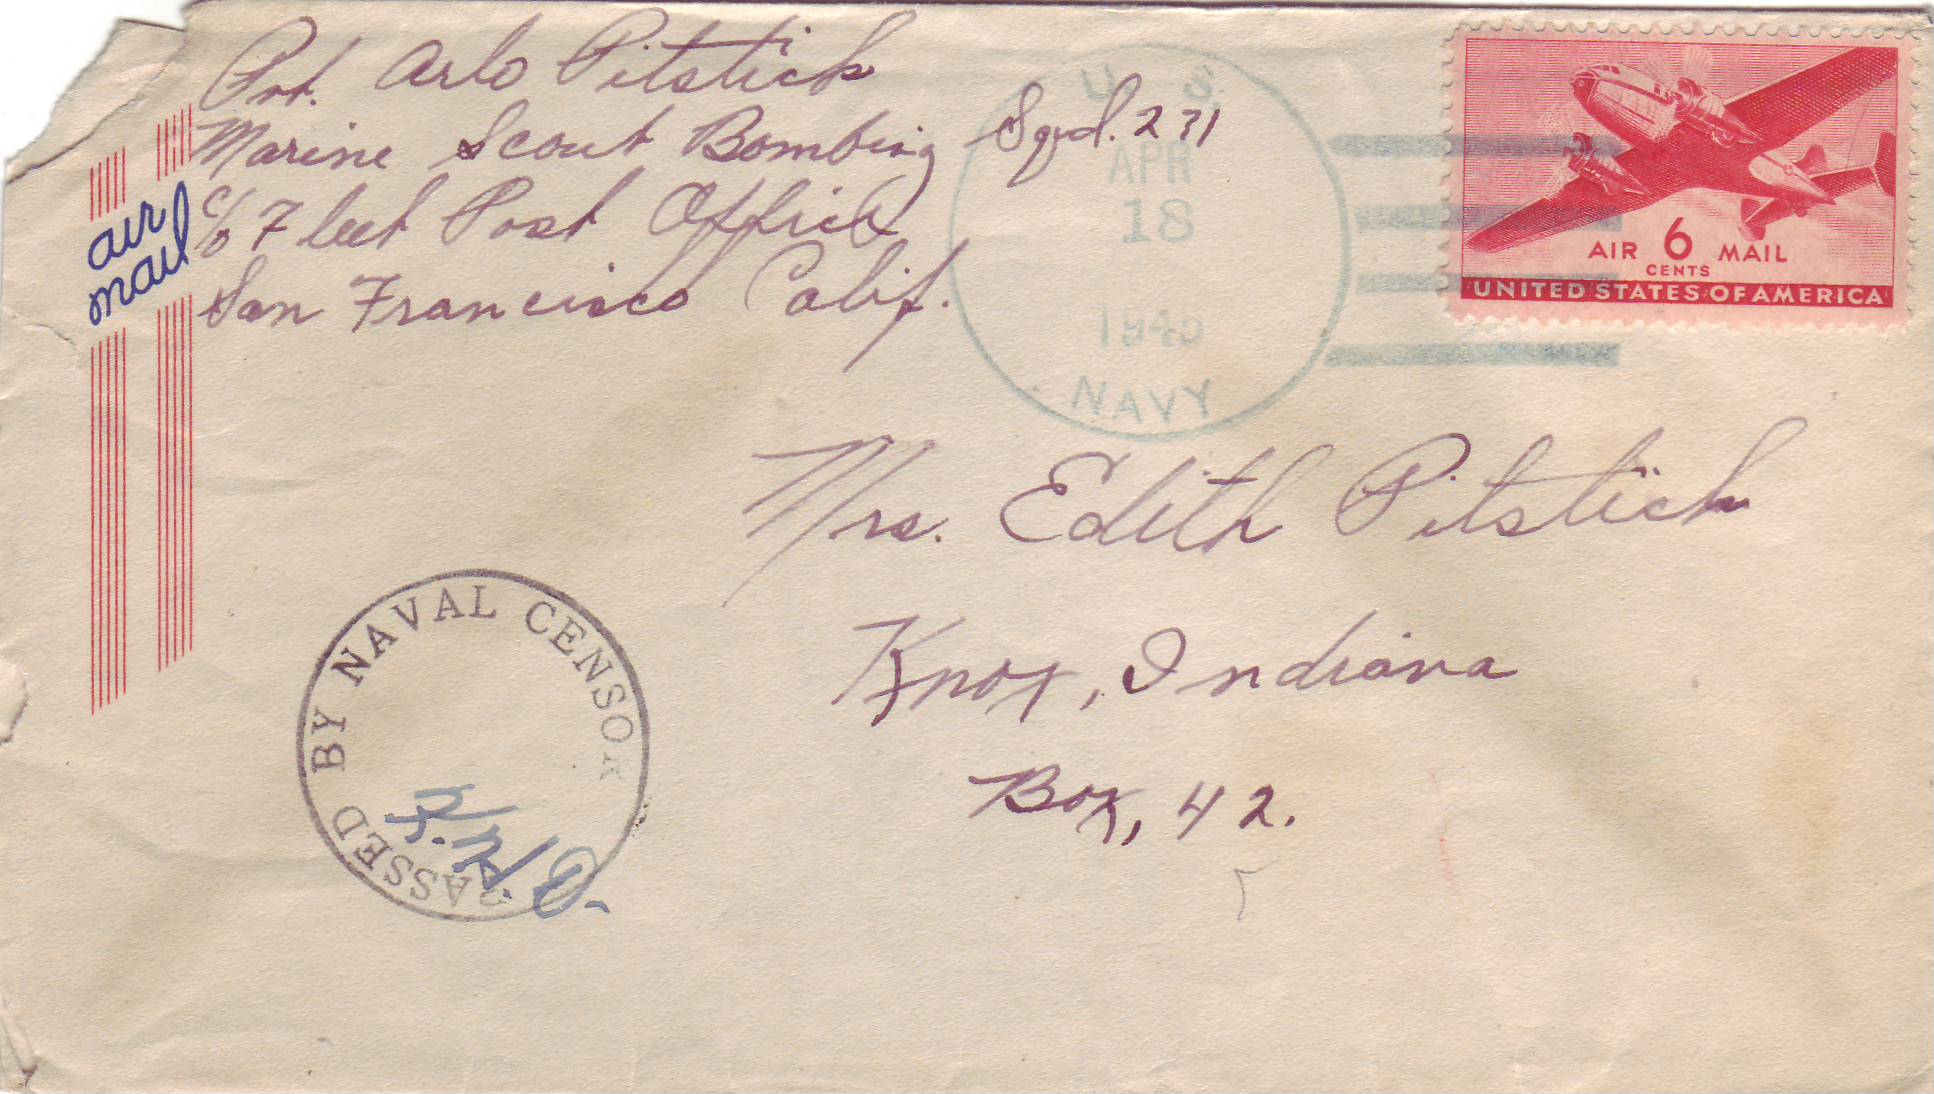 Pvt. Arlo Pitstick
Marine Scout Bombing Sqd. 271
c/o Fleet Post Office
San Francisco Calif.
air
mail
U S
APR
18
NAVY
AIR 6 MAIL
CENTS
UNITED STATES OF AMERICA
Mrs. Edith Pitstick
Knox, Indiana
Box, 42.
PASSED BY NAVAL CENSOR